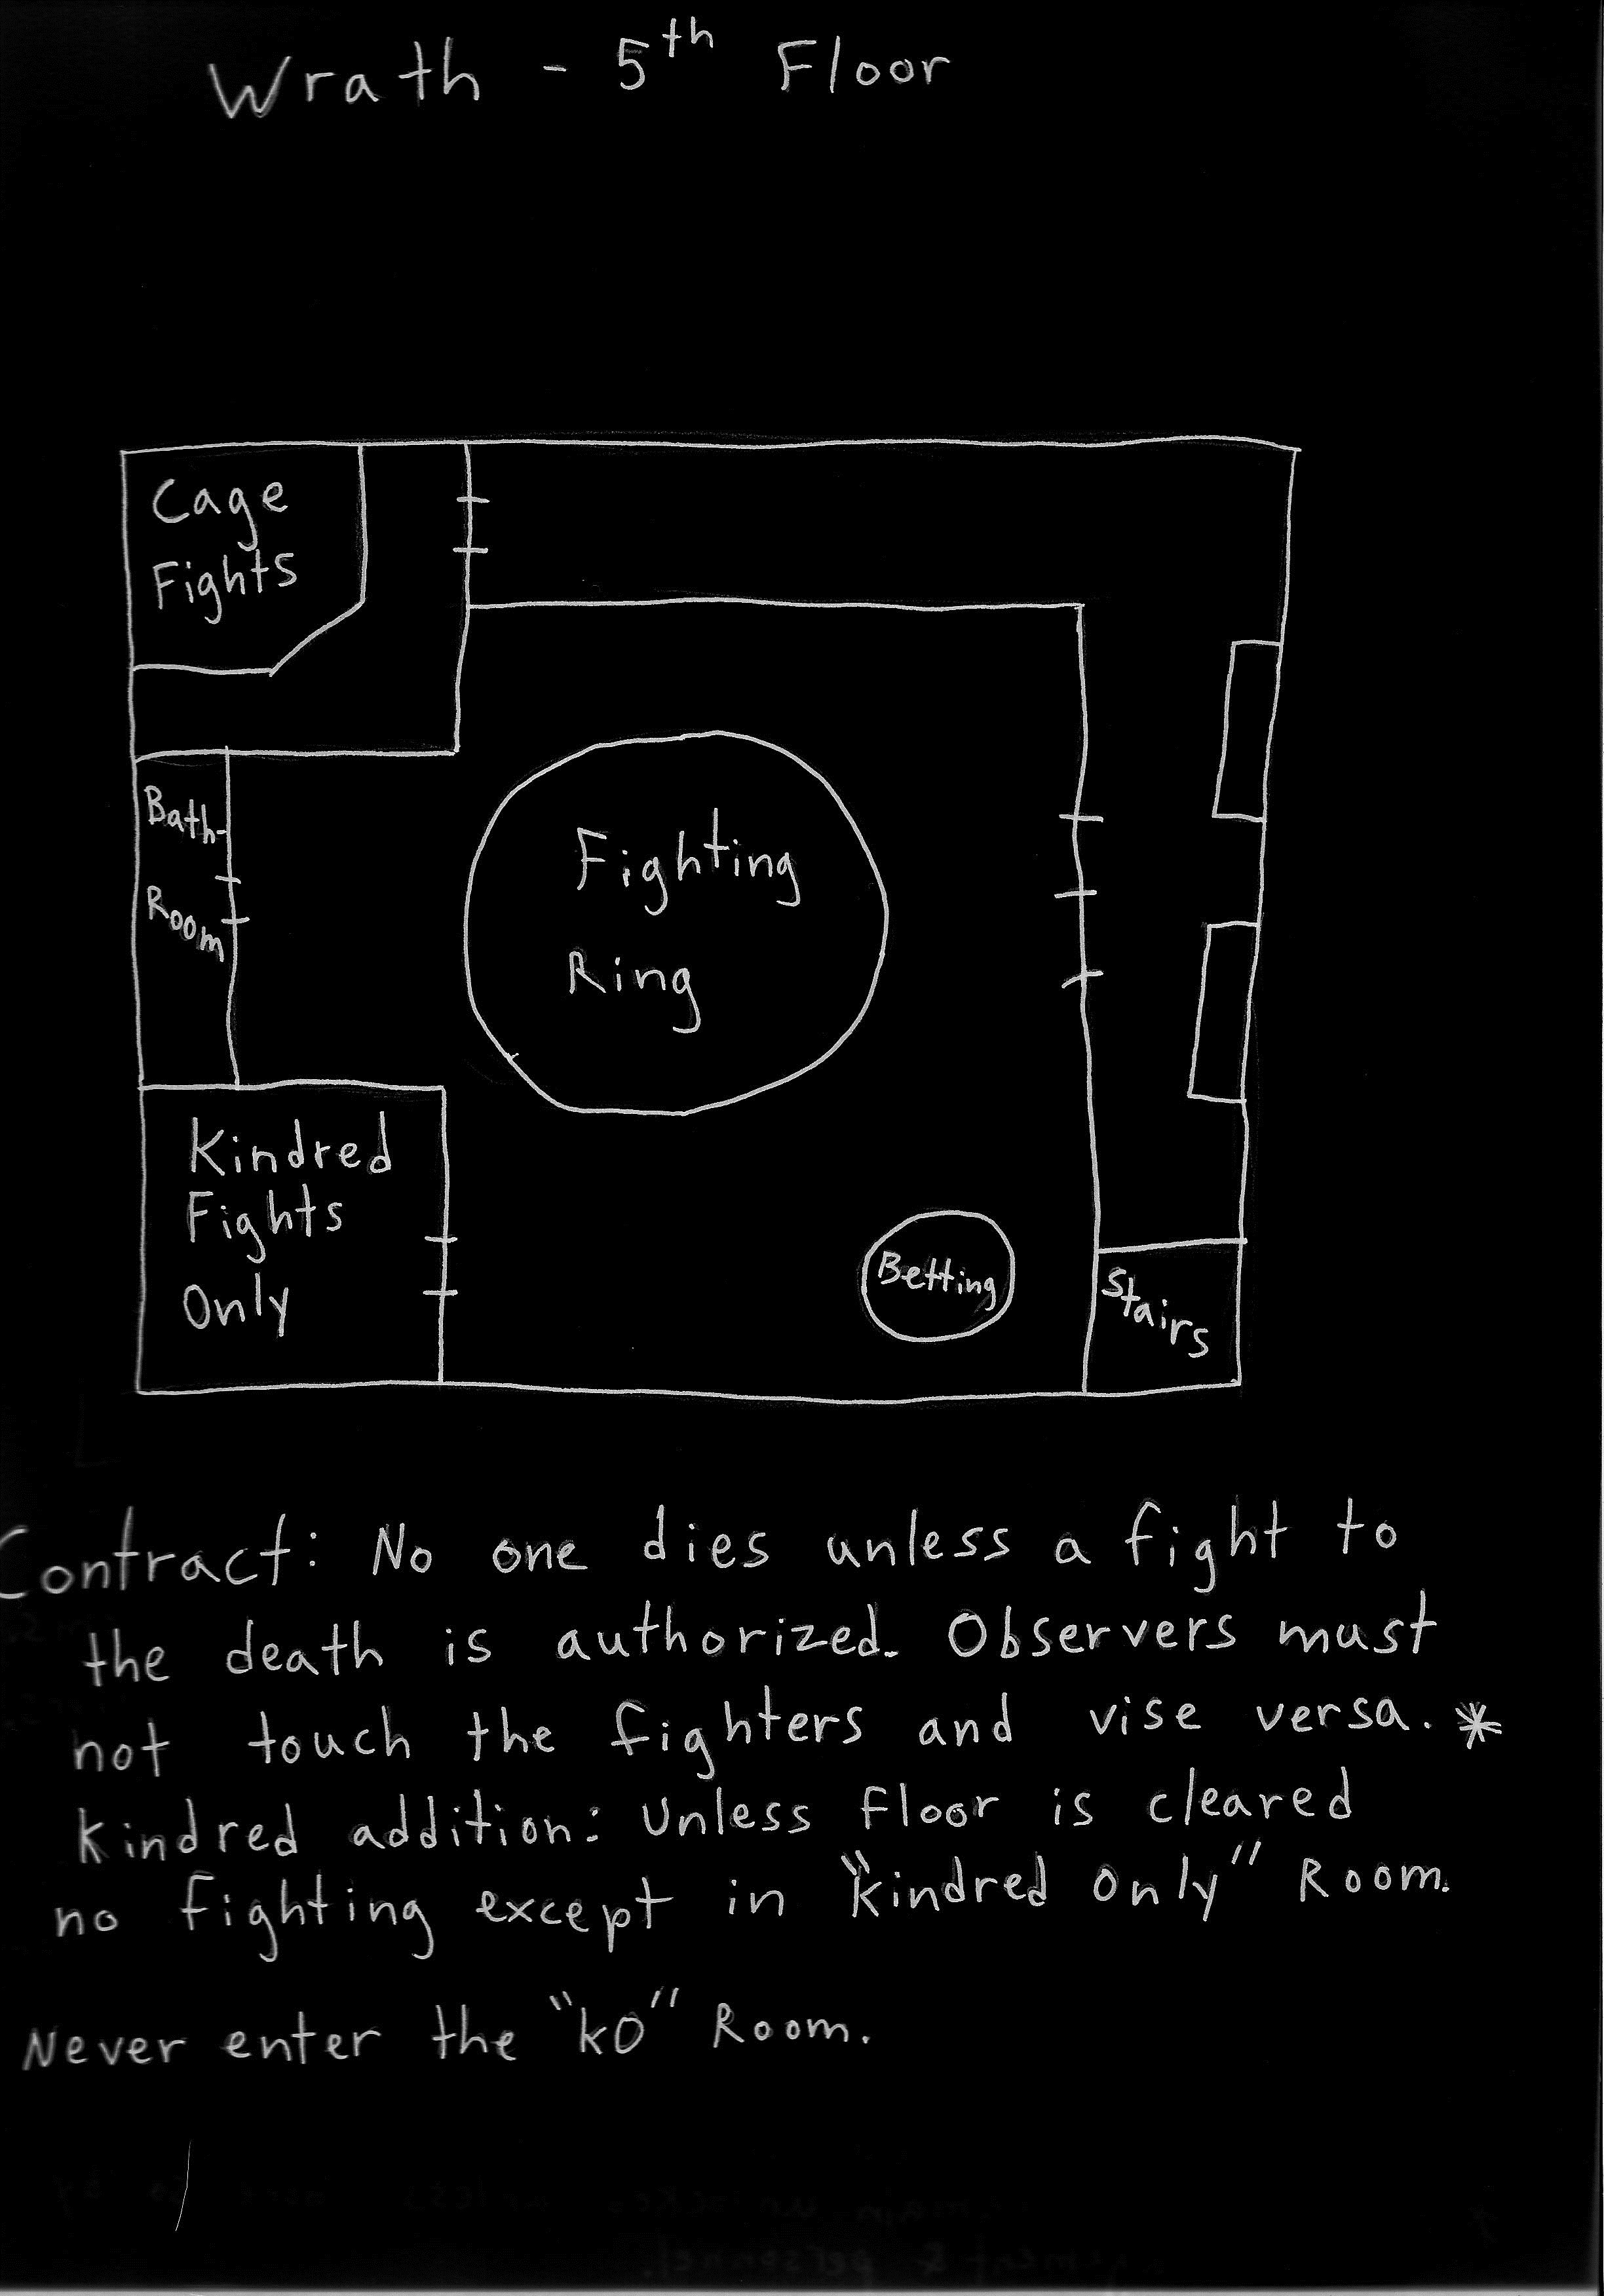 Wrath - 5th Floor
Cage
Fights
Bath-
Room
Fighting
Ring
Kindred
Fights
Only
Betting
Stairs
Contract: No one dies unless a fight to
the death is authorized. Observers must
not touch the fighters and vise versa. *
Kindred addition: Unless Floor is cleared
no fighting except in "Kindred Only" Room.
Never enter the "KO" Room.